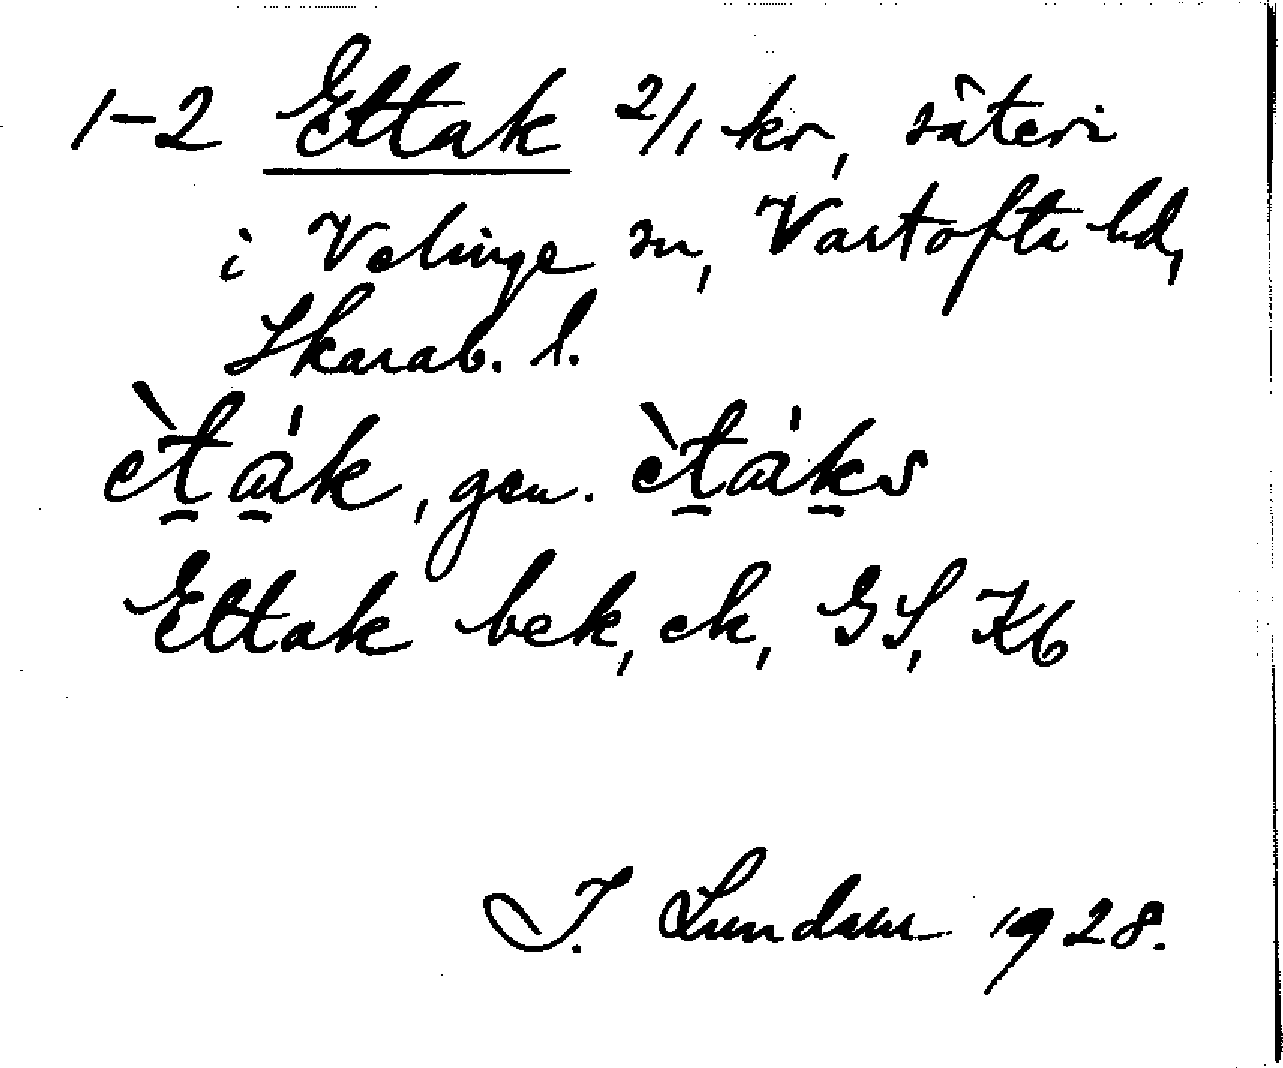 1-2 Ettak 2/1 kr, säteri
i Velinge sn, Vartofta hd,
Skarab. l.
èt̠a̠'k, gen. èt̠a'k̠s
Ettak bek, ek, GS, Kb
I. Lundsun 1928.